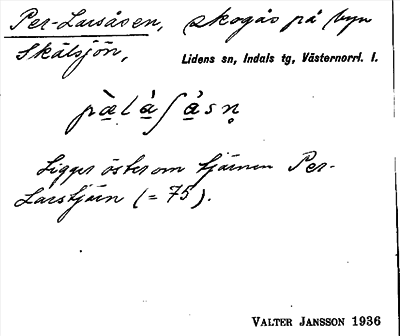 Per-Larsåsen, skogås på byn
Skälsjön,
Lidens sn, Indals tg, Västernorrl. l.
Ligger öster om tjärnen Per-
Larstjärn (= 75).
VALTER JANSSON 1936